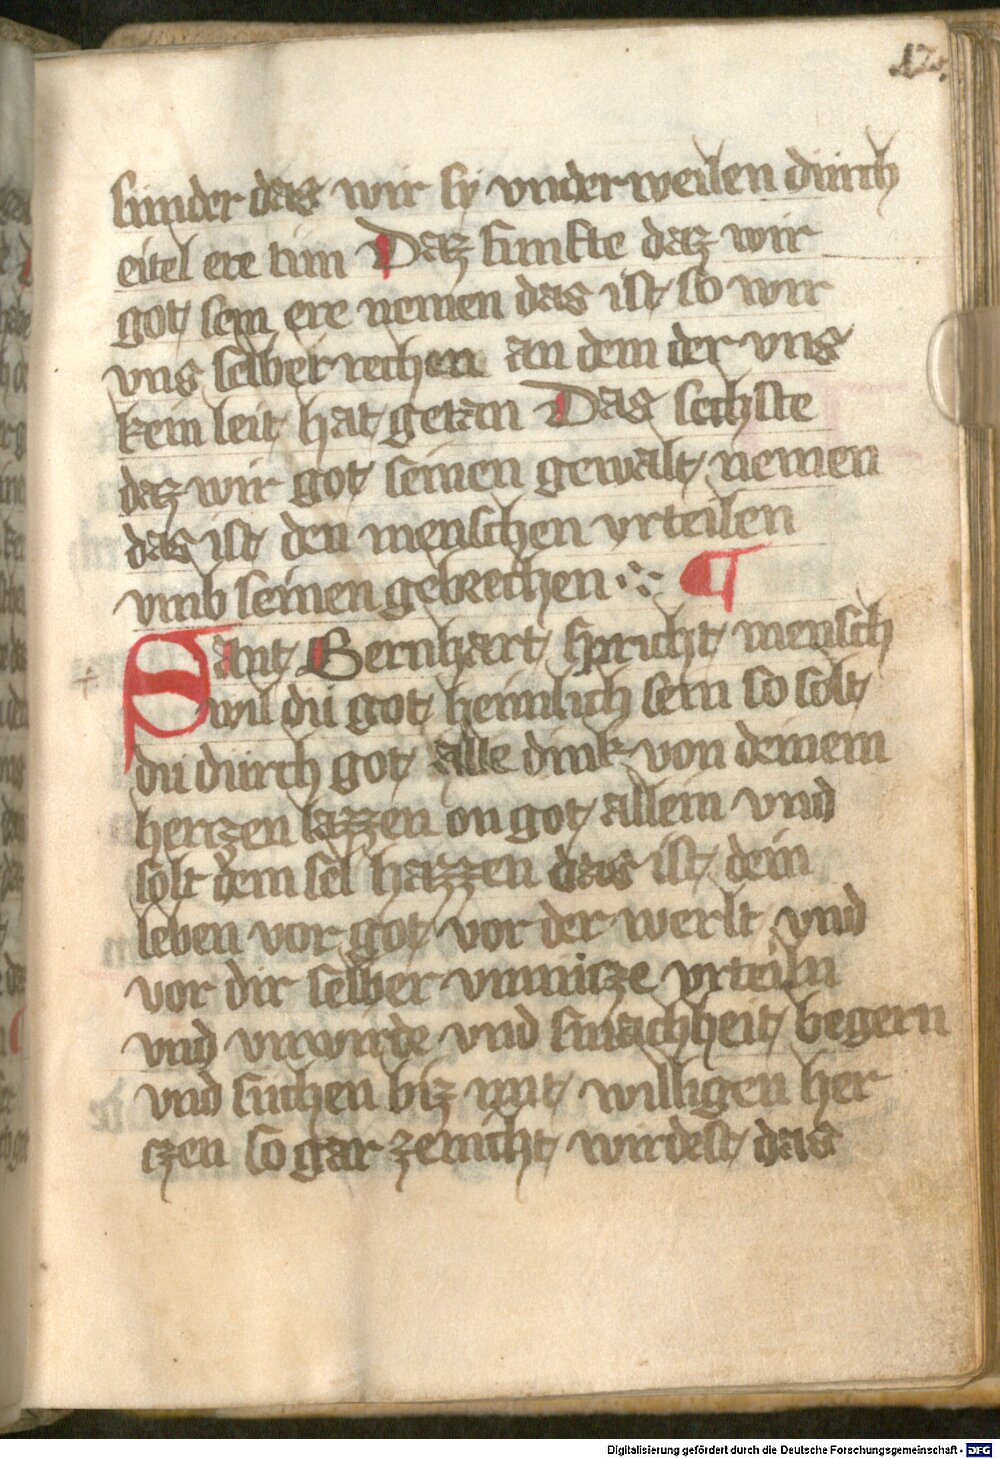 17.
sunder das wir sy vnderweilen durch
eitel ere tun Daz funfte daz wir
got sein ere nemen das ist so wir
vns selber rechen an dem der vns
kein leit hat getan Das sechste
daz wir got seinen gewalt nemen
das ist den menschen vrteilen
vmb seinen gebrechen ¶
Sant Bernhart spricht mensch
wil du got heimlich sein so solt
du durch got alle dink von deinem
herczen lazzen on got allein vnd
solt dein sel hazzen das ist dein
leben vor got vor der werlt vnd
vor dir selber vnnucze vrteiln
vnd vnwirde vnd smachheit begern
vnd suchen biz mit willigen her
czen so gar zenicht wirdest das
Digitalisierung gefördert durch die Deutsche Forschungsgemeinschaft - DFG